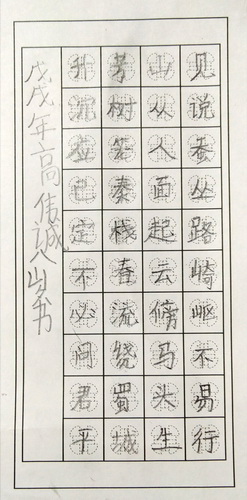 见说蚕丛路崎岖不易行
山从人面起云傍马头生
芳树笼秦栈春流绕蜀城
升沉应已定不必问君平
戊戌年高伟誠八岁书